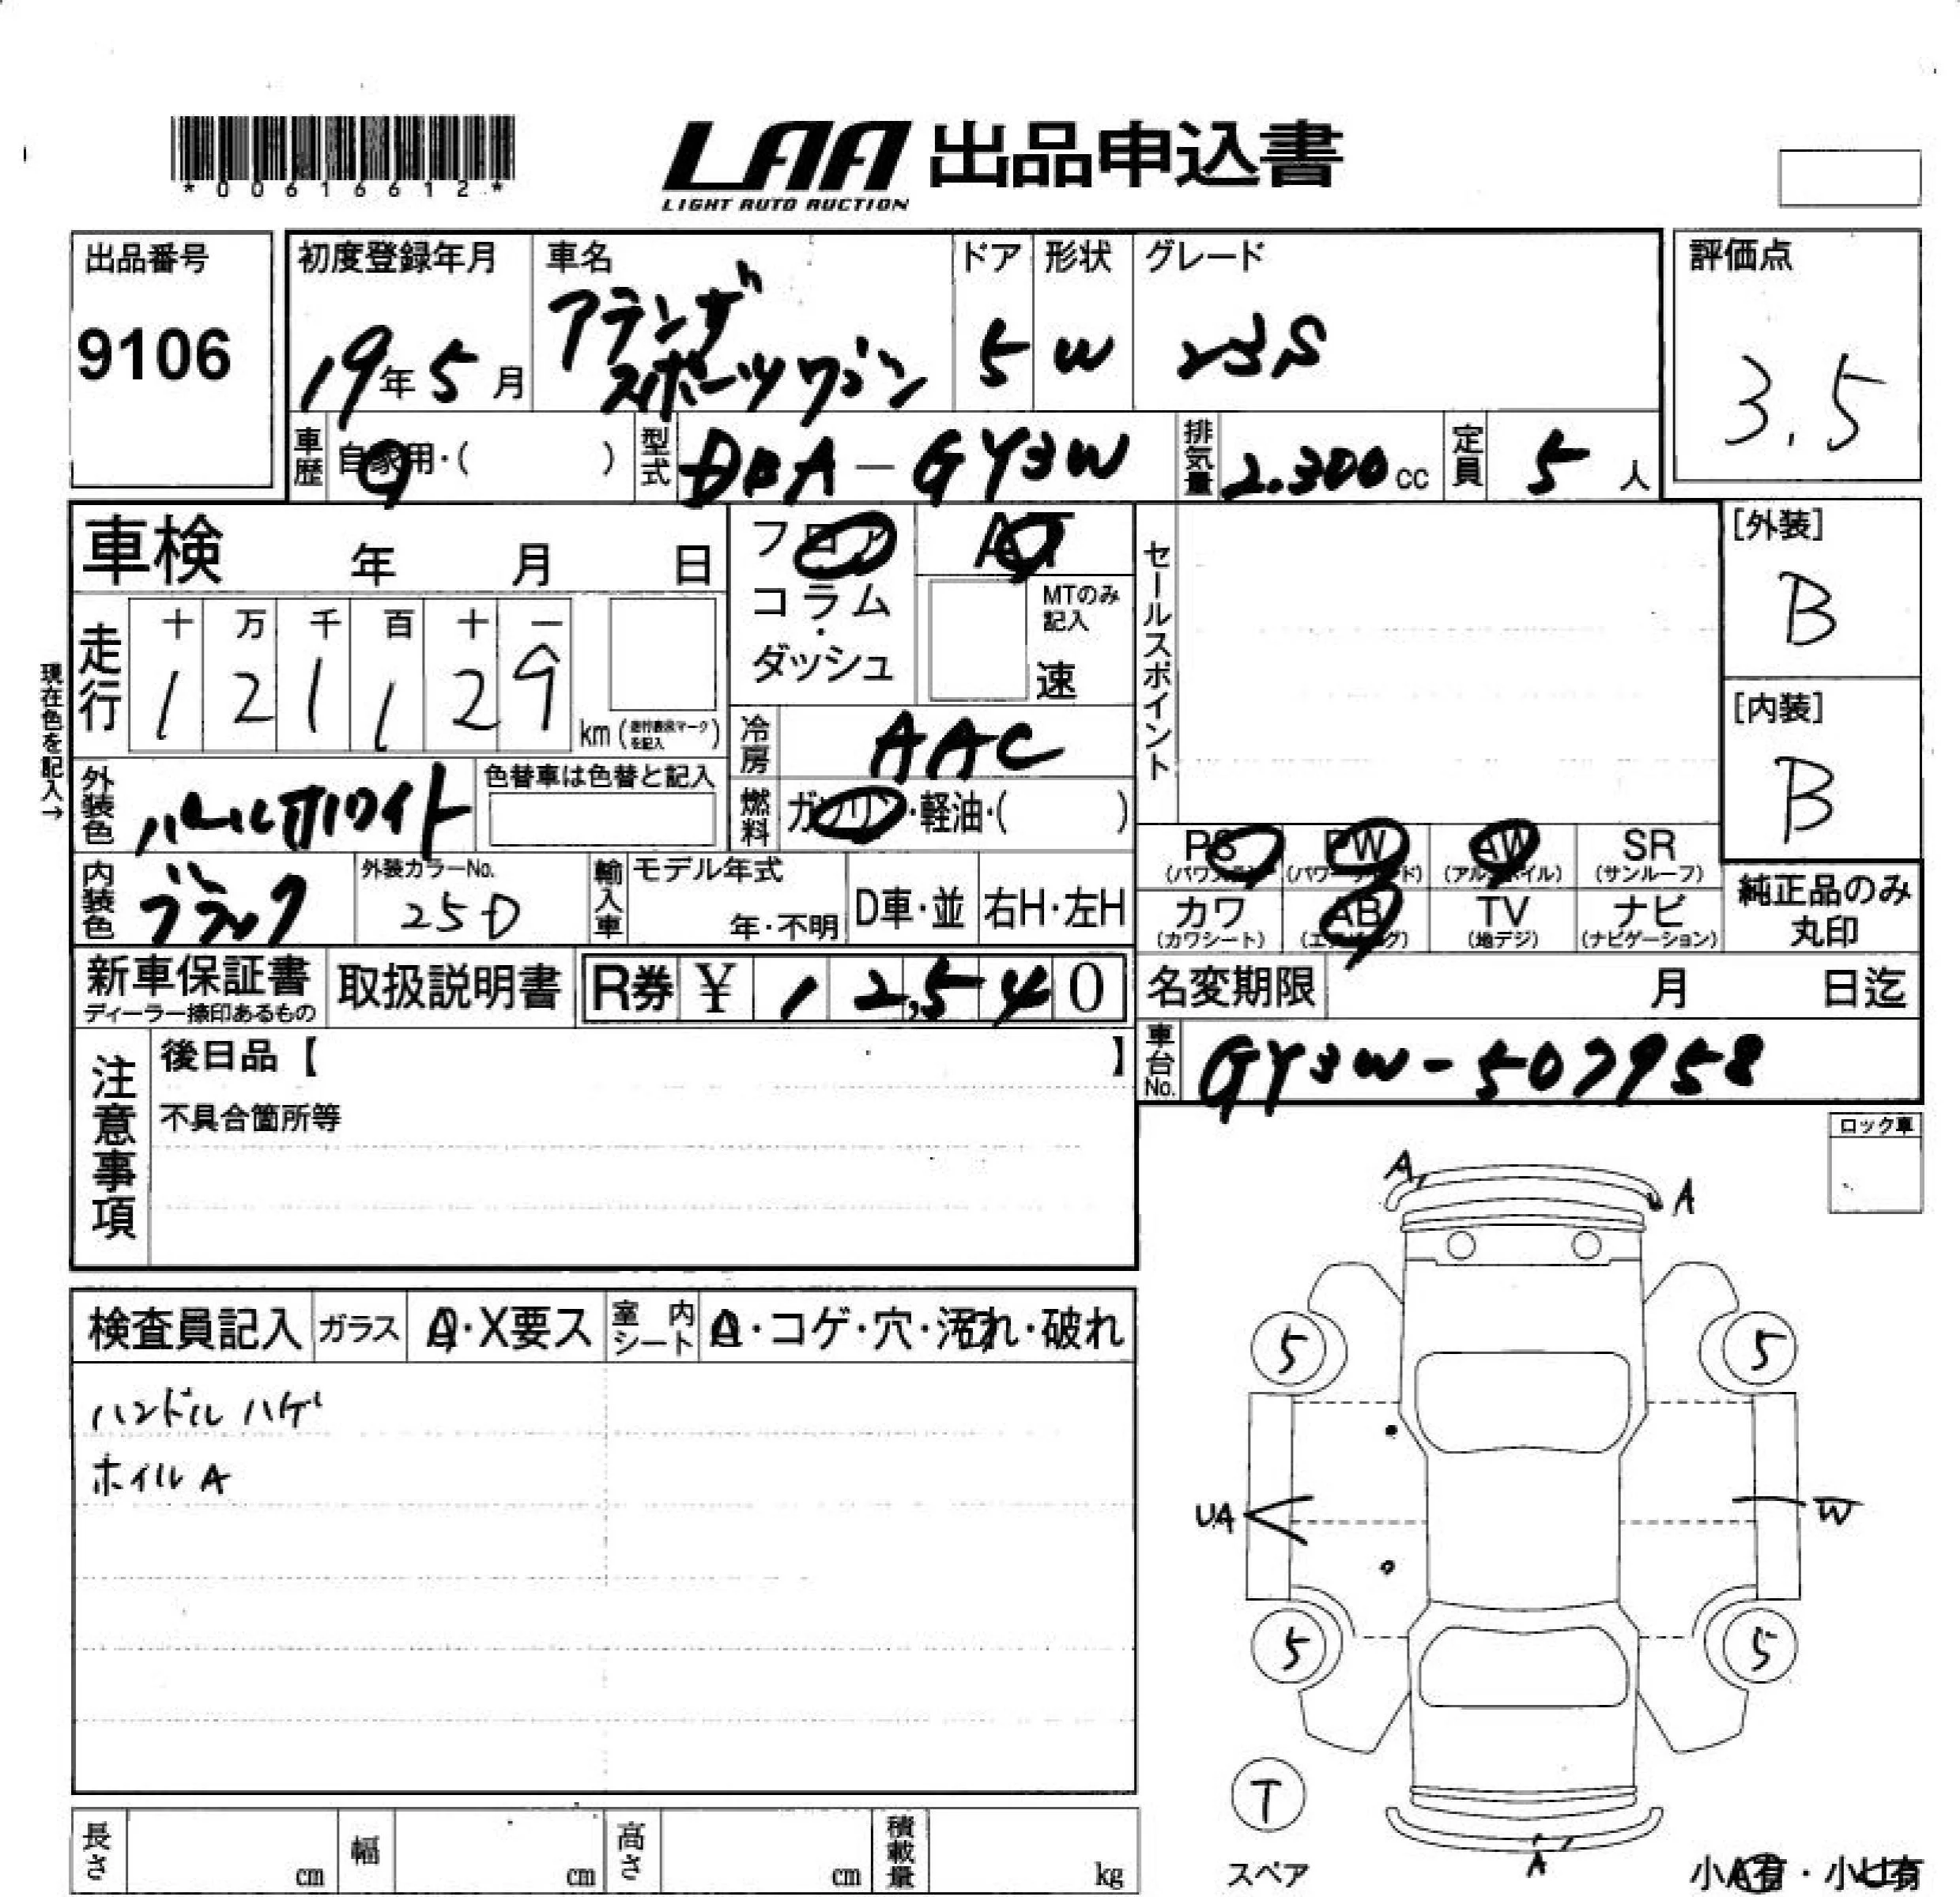 *00616612*
LAA 出品申込書
LIGHT AUTO AUCTION
出品番号
9106
初度登録年月
19年5月
車名
アテンザ
スポーツワゴン
ドア
5
形状
W
グレード
23S
評価点
3.5
車歴
自家用・( )
型式
DBA-GY3W
排気量
2.300cc
定員
5人
車検 年 月 日
フロア
コラム
・
ダッシュ
AT
MTのみ
記入
速
セールスポイント
[外装]
B
[内装]
B
現在色を記入→
走行
十 万 千 百 十 一
1 2 1 1 2 9
km(走行表示マークを記入)
冷房
AAC
外装色
パールホワイト
色替車は色替と記入
燃料
ガソリン・軽油・( )
PS
(パワステ)
PW
(パワーウインド)
AW
(アルミホイル)
SR
(サンルーフ)
カワ
(カワシート)
AB
(エアバッグ)
TV
(地デジ)
ナビ
(ナビゲーション)
純正品のみ
丸印
内装色
ブラック
外装カラーNo.
25D
輸入車
モデル年式
年・不明
D車・並
右H・左H
新車保証書
ディーラー捺印あるもの
取扱説明書
R券 ¥ 12,540
名変期限 月 日迄
注意事項
後日品【 】
不具合箇所等
車台No.
GY3W-507958
ロック車
A
A
検査員記入
ガラス
A・X要ス
室内シート
A・コゲ・穴・汚れ・破れ
ハンドルハゲ
ホイルA
5
5
UA
W
5
5
T
スペア
A
長さ cm
幅 cm
高さ cm
積載量 kg
小A有・小U有